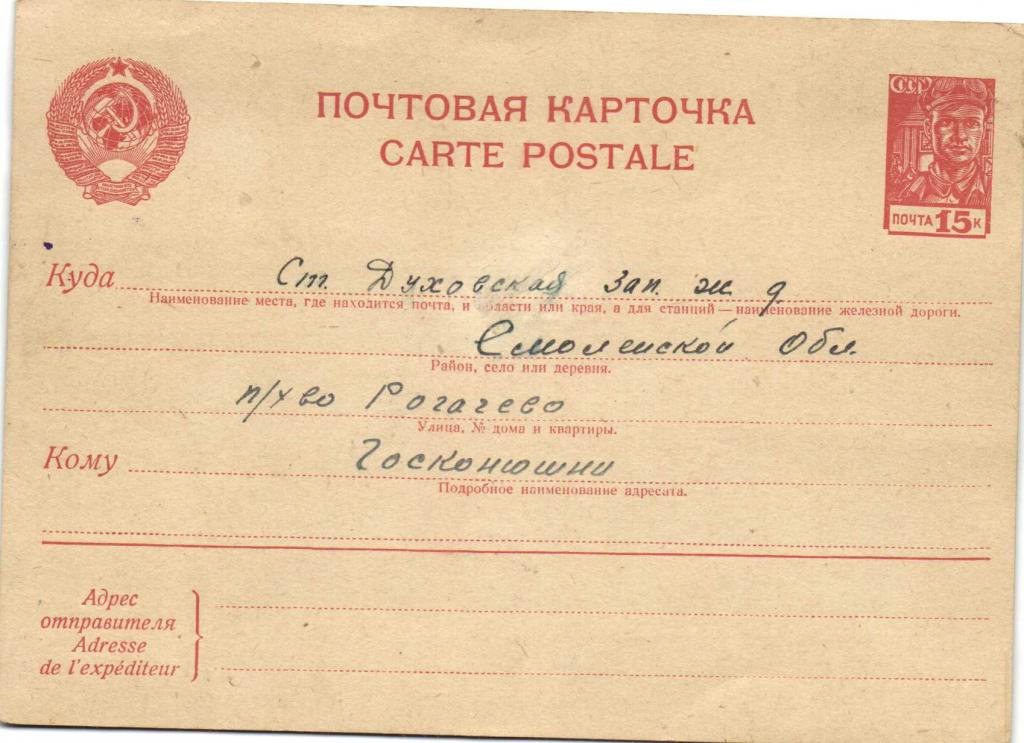 ПОЧТОВАЯ КАРТОЧКА
CARTE POSTALE
СССР
ПОЧТА 15 К
Куда Ст. Духовская Зап. ж д
Наименование места, где находится почта, и области или края, а для станций — наименование железной дороги.
Смоленской Обл.
Район, село или деревня.
п/х во Рогачево
Улица, № дома и квартиры.
Кому Госконюшни
Подробное наименование адресата.
Адрес
отправителя
Adresse
de l'expéditeur